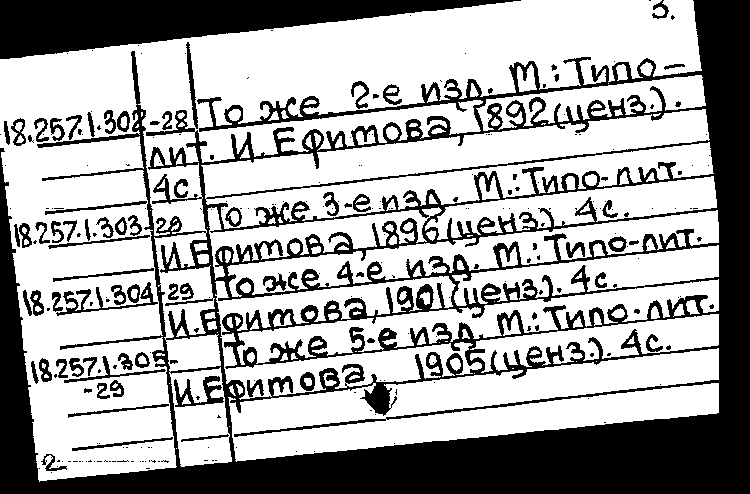 3.
18.257.1.302-28 То же 2-е изд. М.: Типо-
лит. И. Ефимова, 1892 (ценз.).
4с.
18.257.1.303-29 То же. 3-е изд. М.: Типо-лит.
И. Ефимова, 1896 (ценз.). 4с.
18.257.1.304-29 То же. 4-е изд. М.: Типо-лит.
И. Ефимова, 1901 (ценз.). 4с.
18.257.1.305- То же 5-е изд. М.: Типо-лит.
-29 И. Ефимова, 1905 (ценз.). 4с.
2